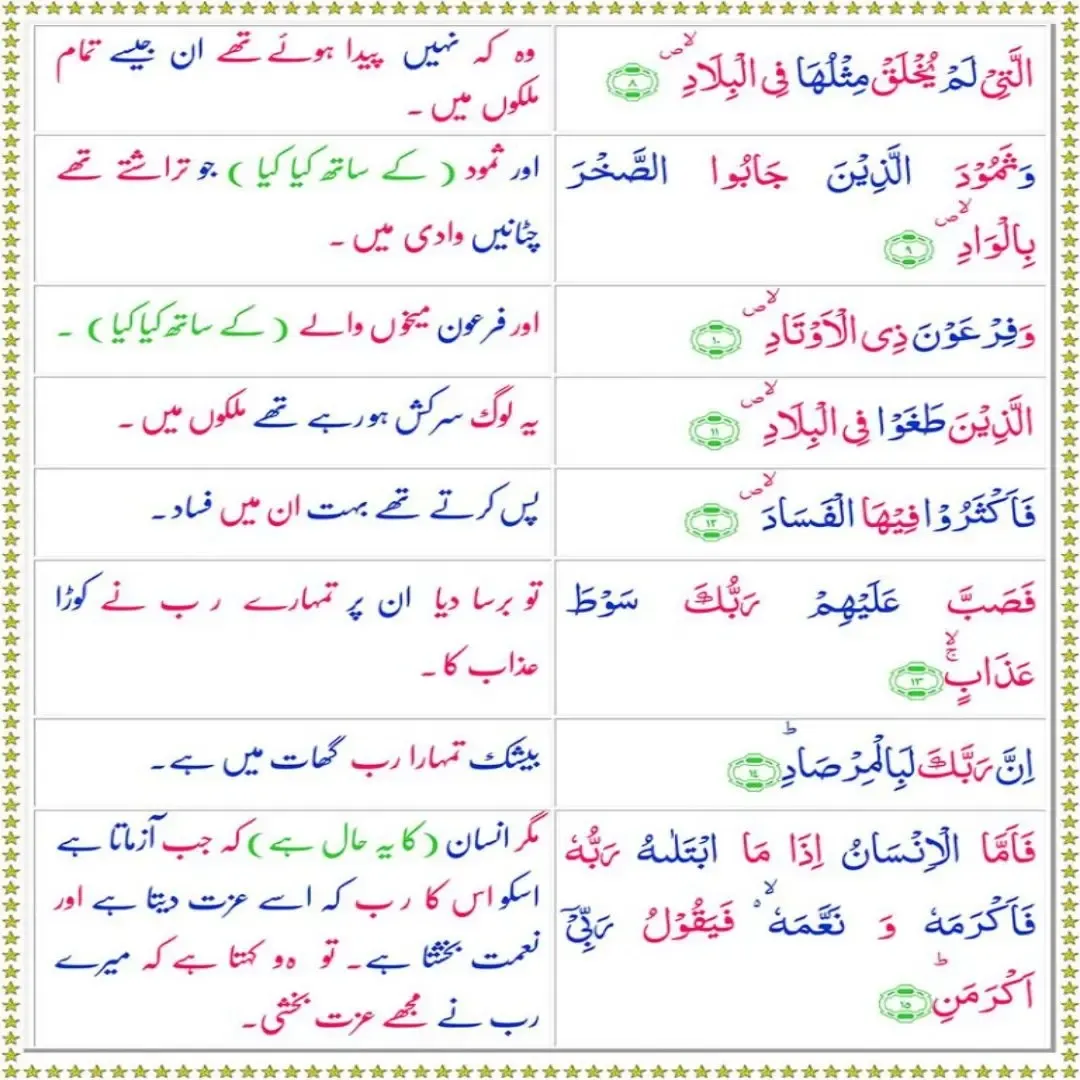 الَّتِىْ لَمْ يُخْلَقْ مِثْلُهَا فِى الْبِلَادِ ۪ۙ ۸
وہ کہ نہیں پیدا ہوئے تھے ان جیسے تمام
ملکوں میں ۔
وَثَمُوْدَ الَّذِيْنَ جَابُوا الصَّخْرَ
بِالْوَادِ ۪ۙ ۹
اور ثمود ( کے ساتھ کیا کیا ) جو تراشتے تھے
چٹانیں وادی میں ۔
وَفِرْعَوْنَ ذِى الْاَوْتَادِ ۪ۙ ۱۰
اور فرعون میخوں والے ( کے ساتھ کیا کیا ) ۔
الَّذِيْنَ طَغَوْا فِى الْبِلَادِ ۪ۙ ۱۱
یہ لوگ سرکش ہورہے تھے ملکوں میں ۔
فَاَكْثَرُوْا فِيْهَا الْفَسَادَ ۪ۙ ۱۲
پس کرتے تھے بہت ان میں فساد ۔
فَصَبَّ عَلَيْهِمْ رَبُّكَ سَوْطَ
عَذَابٍ ۙۚ ۱۳
تو برسا دیا ان پر تمہارے رب نے کوڑا
عذاب کا ۔
اِنَّ رَبَّكَ لَبِالْمِرْصَادِ ؕ ۱٤
بیشک تمہارا رب گھات میں ہے ۔
فَاَمَّا الْاِنْسَانُ اِذَا مَا ابْتَلٰىهُ رَبُّهٗ
فَاَكْرَمَهٗ وَ نَعَّمَهٗ ۙ۬ فَيَقُوْلُ رَبِّىْۤ
اَكْرَمَنِ ؕ ۱۵
مگر انسان ( کا یہ حال ہے ) کہ جب آزماتا ہے
اسکو اس کا رب کہ اسے عزت دیتا ہے اور
نعمت بخشتا ہے ۔ تو وہ کہتا ہے کہ میرے
رب نے مجھے عزت بخشی ۔